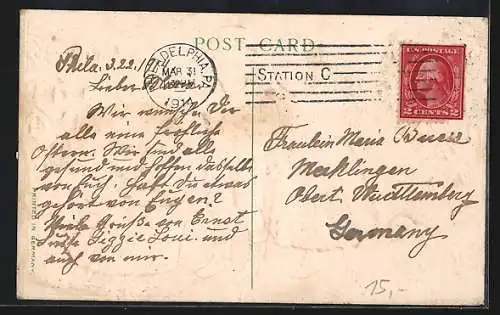 POST CARD
PHILADELPHIA, PA.
MAR 31
STATION C
U.S. POSTAGE
2 CENTS 2
Phila. 3.22.
Lieber
Wir wünschen Dir
alle eine fröhliche
Ostern. Wir sind alle
gesund und hoffen dasselbe
von Euch. Hast Du etwas
gehört von Eugen?
Viele Grüße von Ernst
Lizzie Loui und
auch von mir.
Fraulein Maria
Mecklingen
Obert. Württemberg
Germany
PRINTED IN GERMANY
15,-